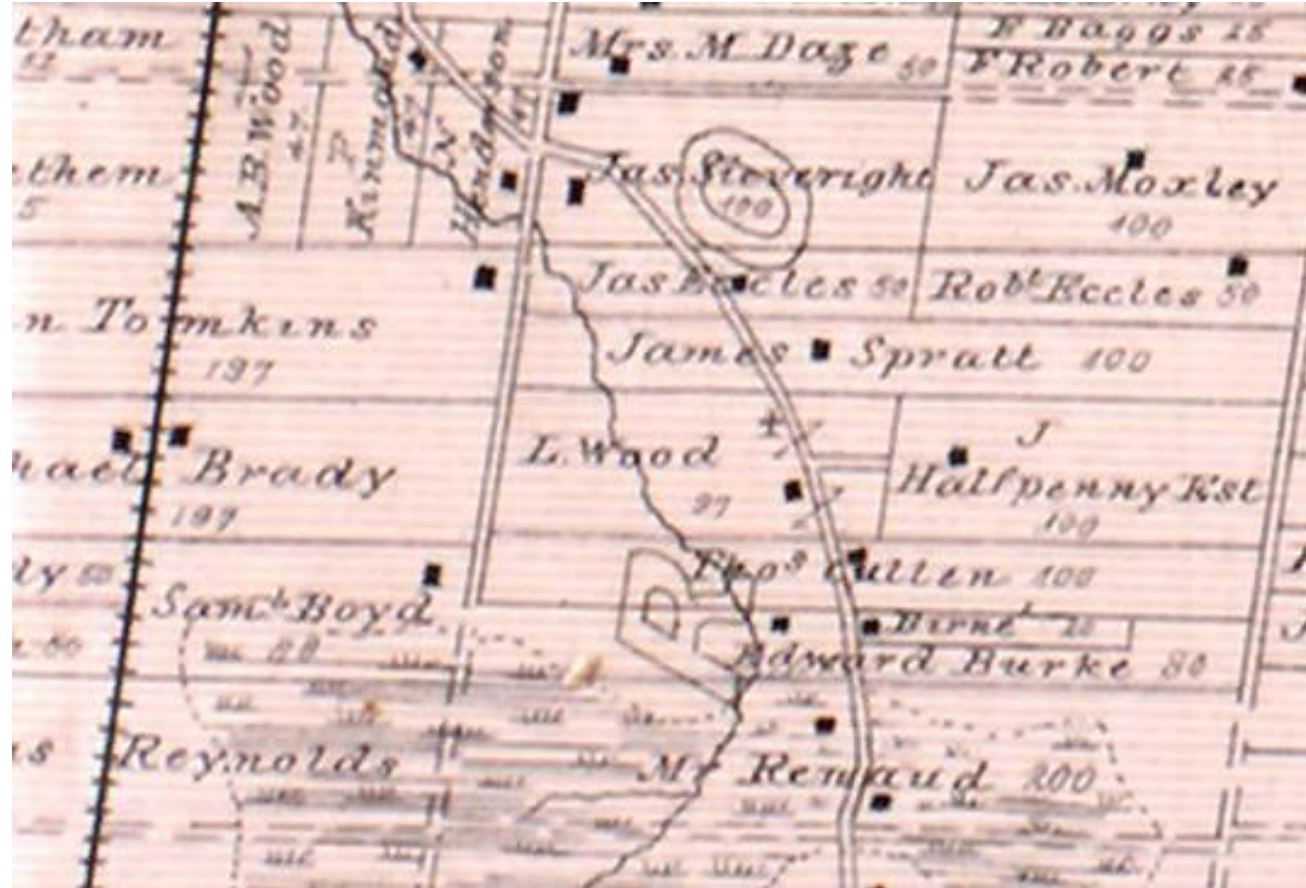 tham
A.B. Wood
47
P
Kinmond
47
N
Henderson
47
Mrs. M Daze 50
E Baggs 25
F Robert 25
them
5
Jas. Sieveright
100
Jas. Moxley
100
Jas Eccles 50
Robt. Eccles 50
n Tomkins
197
James Spratt 100
hael Brady
197
L. Wood
97
J
Halfpenny Est
100
ly 50
Saml. Boyd
Thos Cullen 100
Birne
Edward Burke 80
s Reynolds
Mr Renaud 200